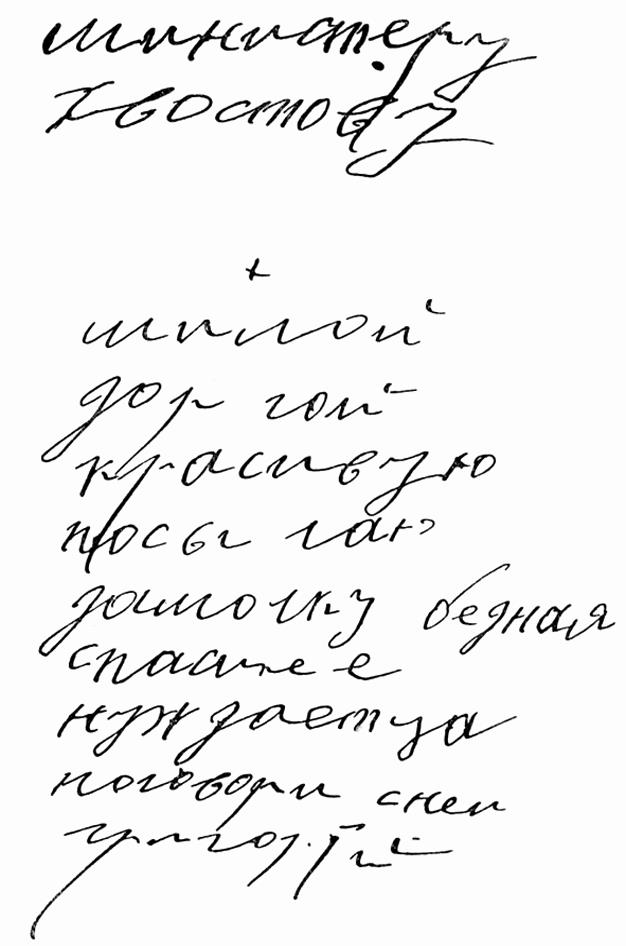 министеру
хвостову
+
милой
дор гой
красивую
посы лаю
дамочку бедная
спасите е
нуждаетца
поговори снеи
григорий